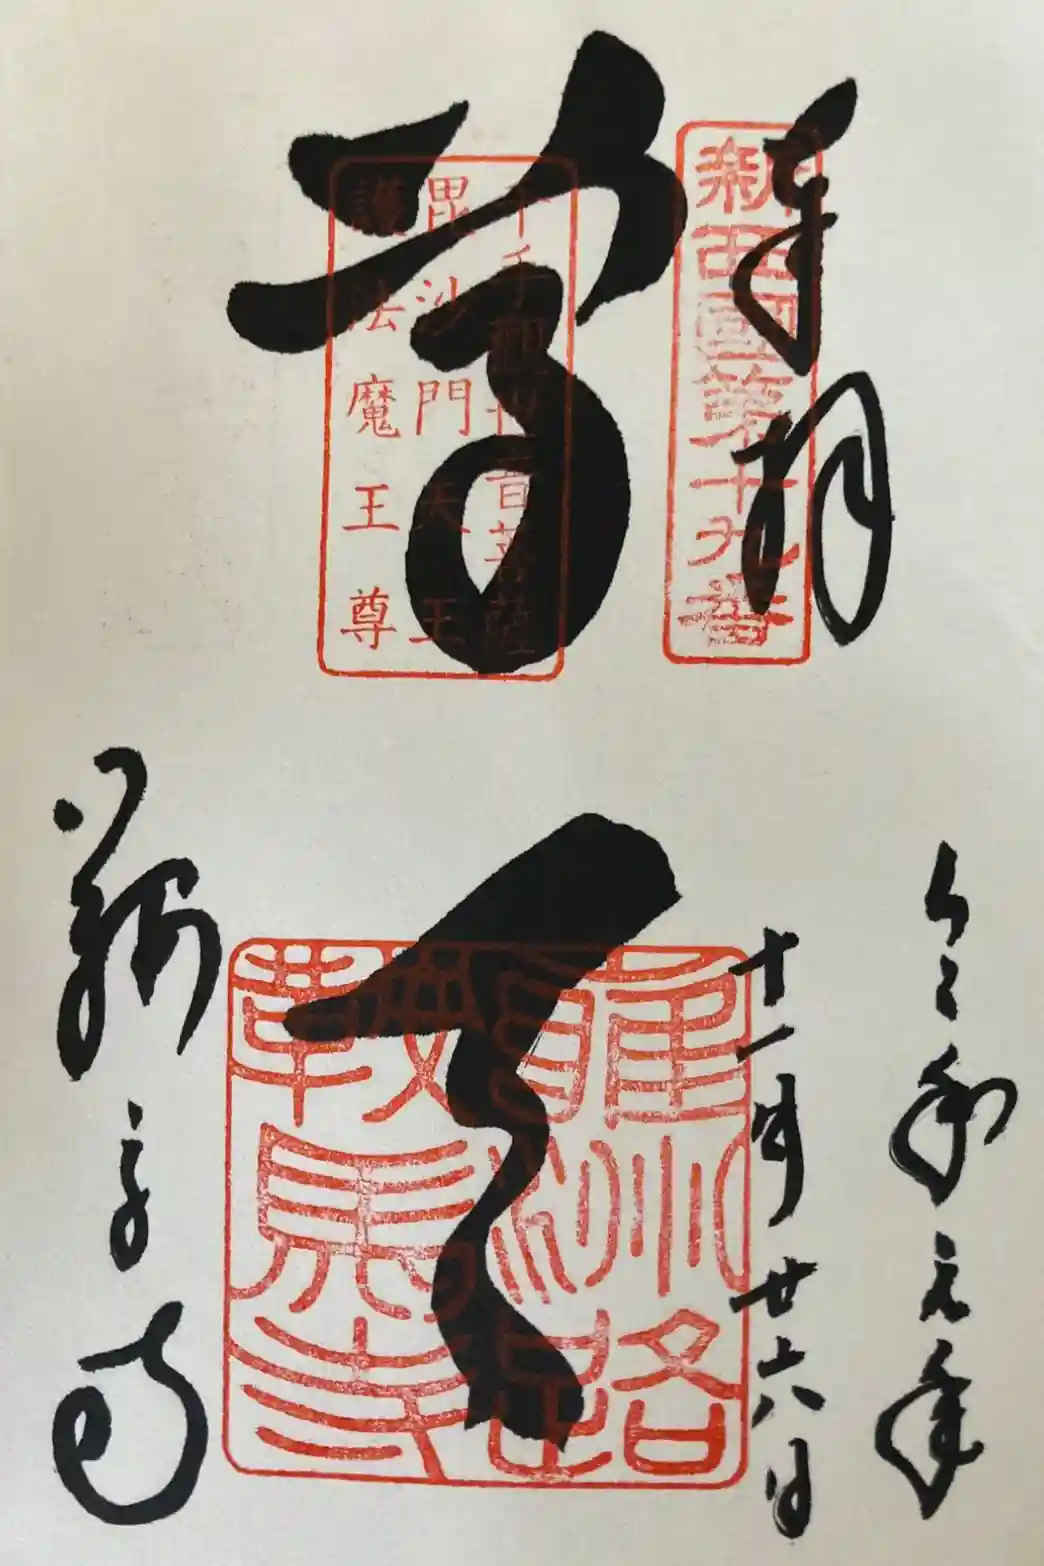 奉拝
新西國第十九番
令和元年
十一月廿六日
尊天
千手觀世音菩薩
毘沙門天王
護法魔王尊
雍州路
鞍馬寺
鞍馬寺